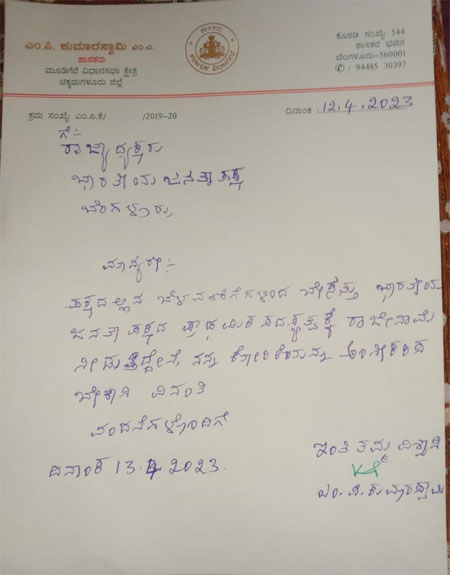 ಎಂ.ಪಿ. ಕುಮಾರಸ್ವಾಮಿ ಎಂ.ಎ.
ಶಾಸಕರು
ಮೂಡಿಗೆರೆ ವಿಧಾನಸಭಾ ಕ್ಷೇತ್ರ
ಚಿಕ್ಕಮಗಳೂರು ಜಿಲ್ಲೆ
ಶಾಸಕರು
ಕೊಠಡಿ ಸಂಖ್ಯೆ 544
ಶಾಸಕರ ಭವನ
ಬೆಂಗಳೂರು-560001
✆ : 94485 30397
ಕ್ರಮ ಸಂಖ್ಯೆ ಎಂ.ಪಿ.ಕೆ/ /2019-20
ದಿನಾಂಕ : 12.4.2023
ಗೆ:-
ರಾಜ್ಯಾಧ್ಯಕ್ಷರು
ಭಾರತೀಯ ಜನತಾ ಪಕ್ಷ
ಬೆಂಗಳೂರು,
ಮಾನ್ಯರೇ:-
ಪಕ್ಷದಲ್ಲಿನ ಬೆಳವಣಿಗೆಗಳಿಂದ ಬೇಸತ್ತು ಭಾರತೀಯ
ಜನತಾ ಪಕ್ಷದ ಪ್ರಾಥಮಿಕ ಸದಸ್ಯತ್ವಕ್ಕೆ ರಾಜೀನಾಮೆ
ನೀಡುತ್ತಿದ್ದೇನೆ, ನನ್ನ ಕೋರಿಕೆಯನ್ನು ಅಂಗೀಕರಿಸ
ಬೇಕಾಗಿ ವಿನಂತಿ
ವಂದನೆಗಳೊಂದಿಗೆ
ಇಂತಿ ತಮ್ಮ ವಿಶ್ವಾಸಿ
ದಿನಾಂಕ 13.4.2023.
ಎಂ.ಪಿ.ಕುಮಾರಸ್ವಾಮಿ